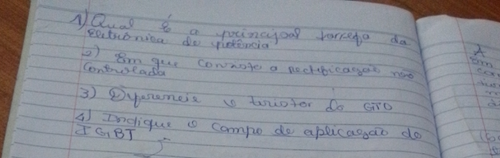 1) Qual é a principal tarefa da
Eletrônica de potência
2) Em que consiste a rectificação não
controlada
3) Diferencie o tiristor do GTO
4) Indique o campo de aplicação do
IGBT